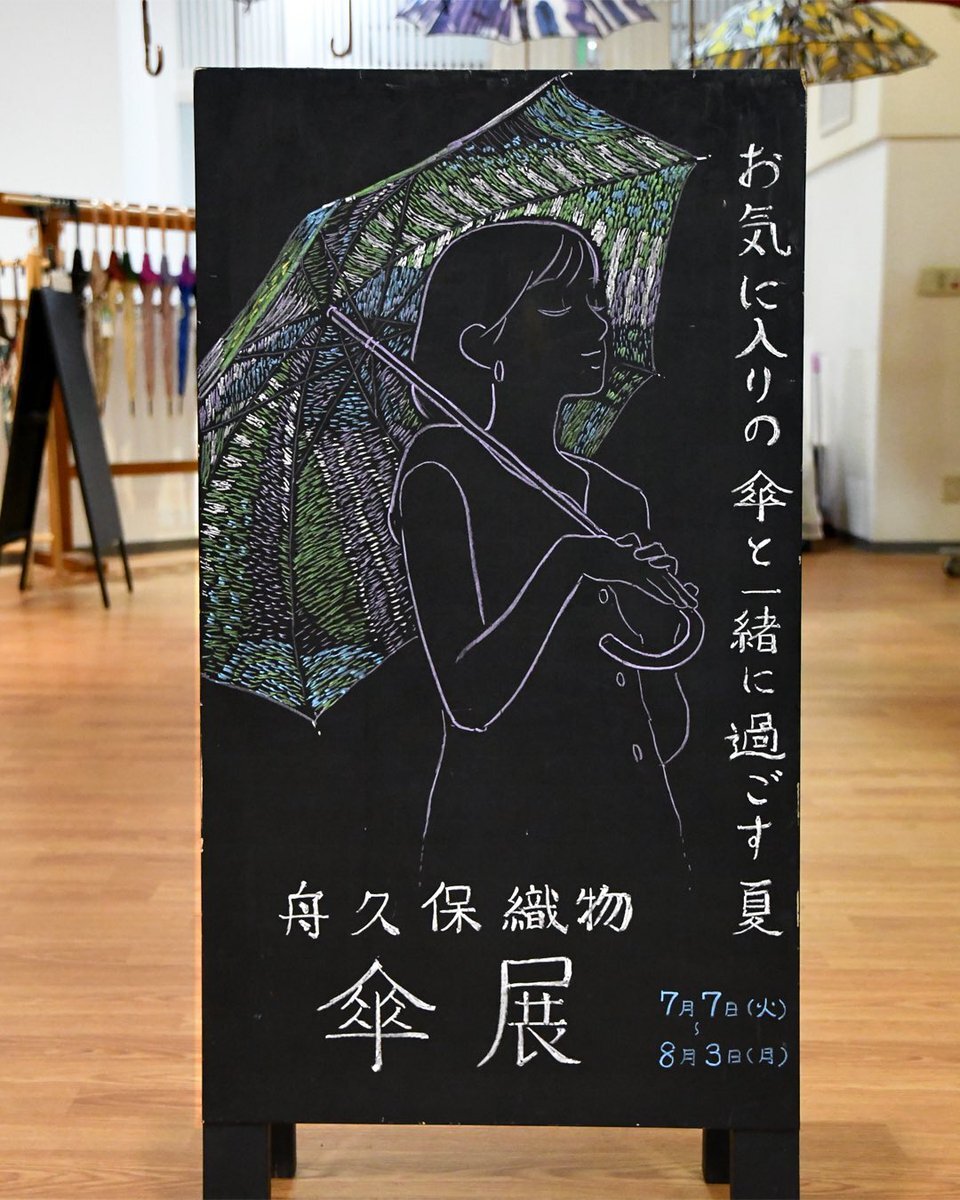 お気に入りの傘と一緒に過ごす夏
舟久保織物
傘展
7月7日(火)
~
8月3日(月)